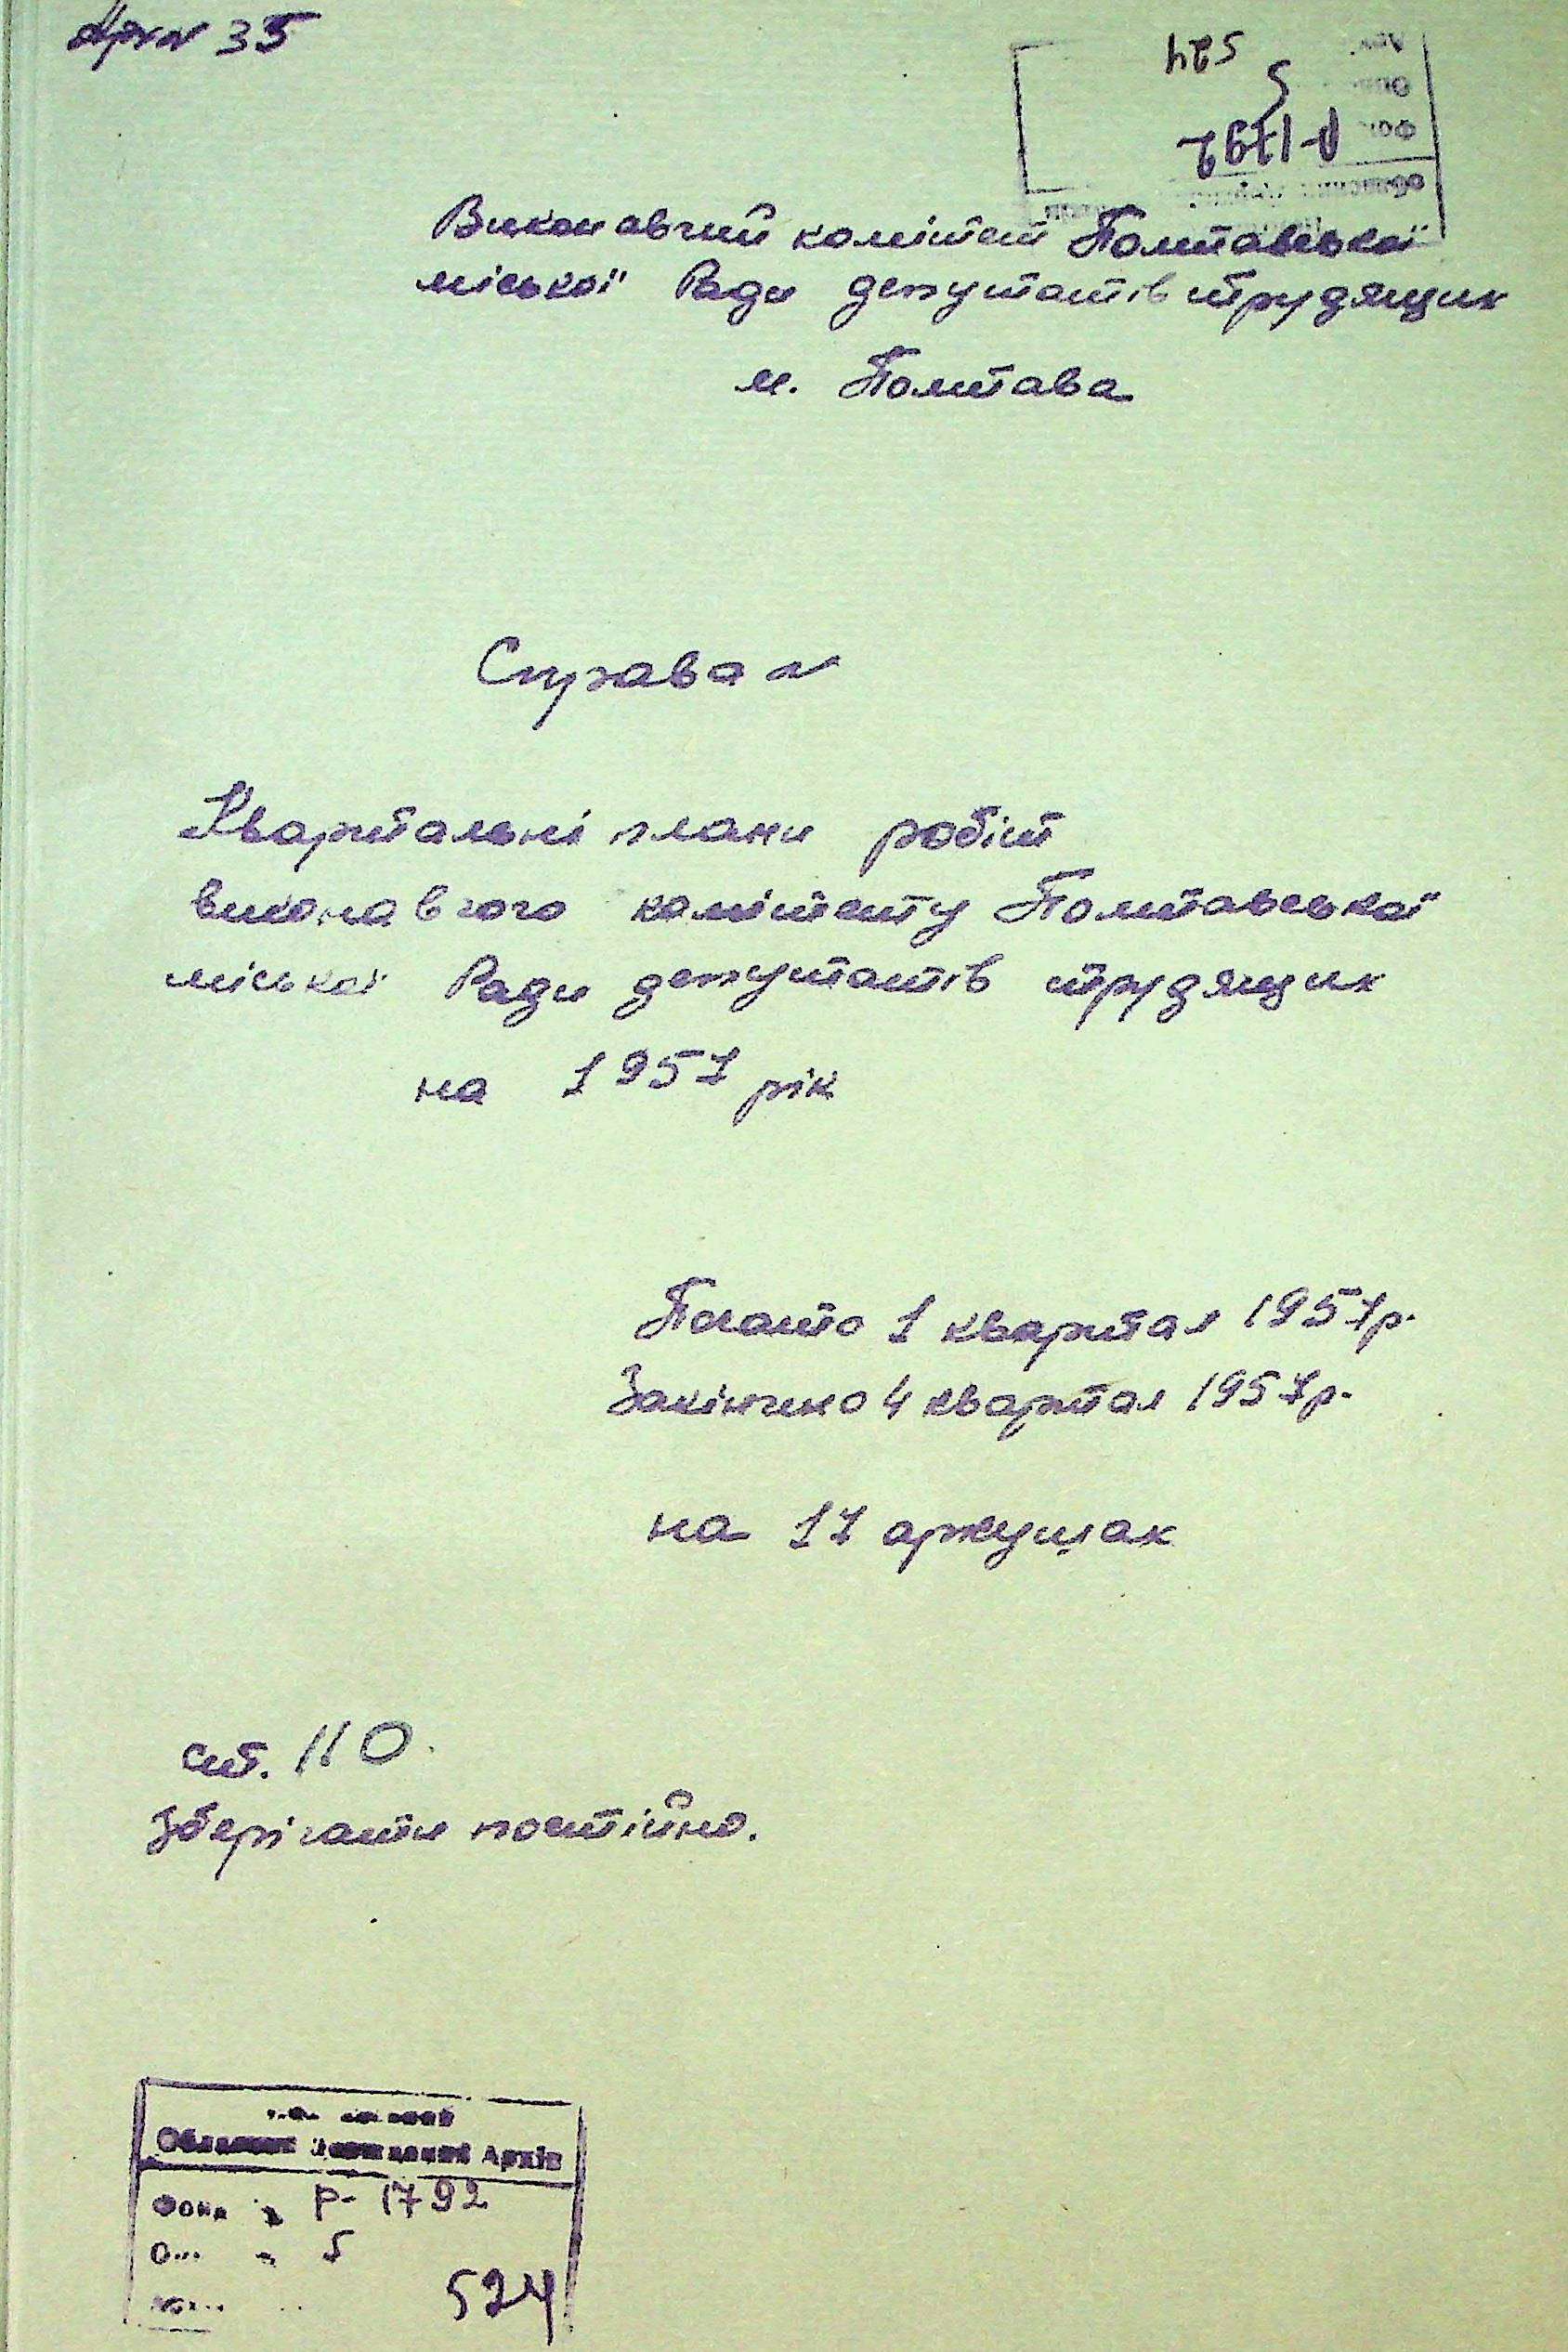 Арх № 35
524
5
Фон Р-1792
Виконавчий комітет Полтавської
міської Ради депутатів трудящих
м. Полтава
Справа №
Квартальні плани робіт
виконавчого комітету Полтавської
міської Ради депутатів трудящих
на 1957 рік
Почато 1 квартал 1957р.
Закінчено 4 квартал 1957р.
на 17 аркушах
ст. 110.
Зберігати постійно.
Архів
Фонд № Р-1792
5
524